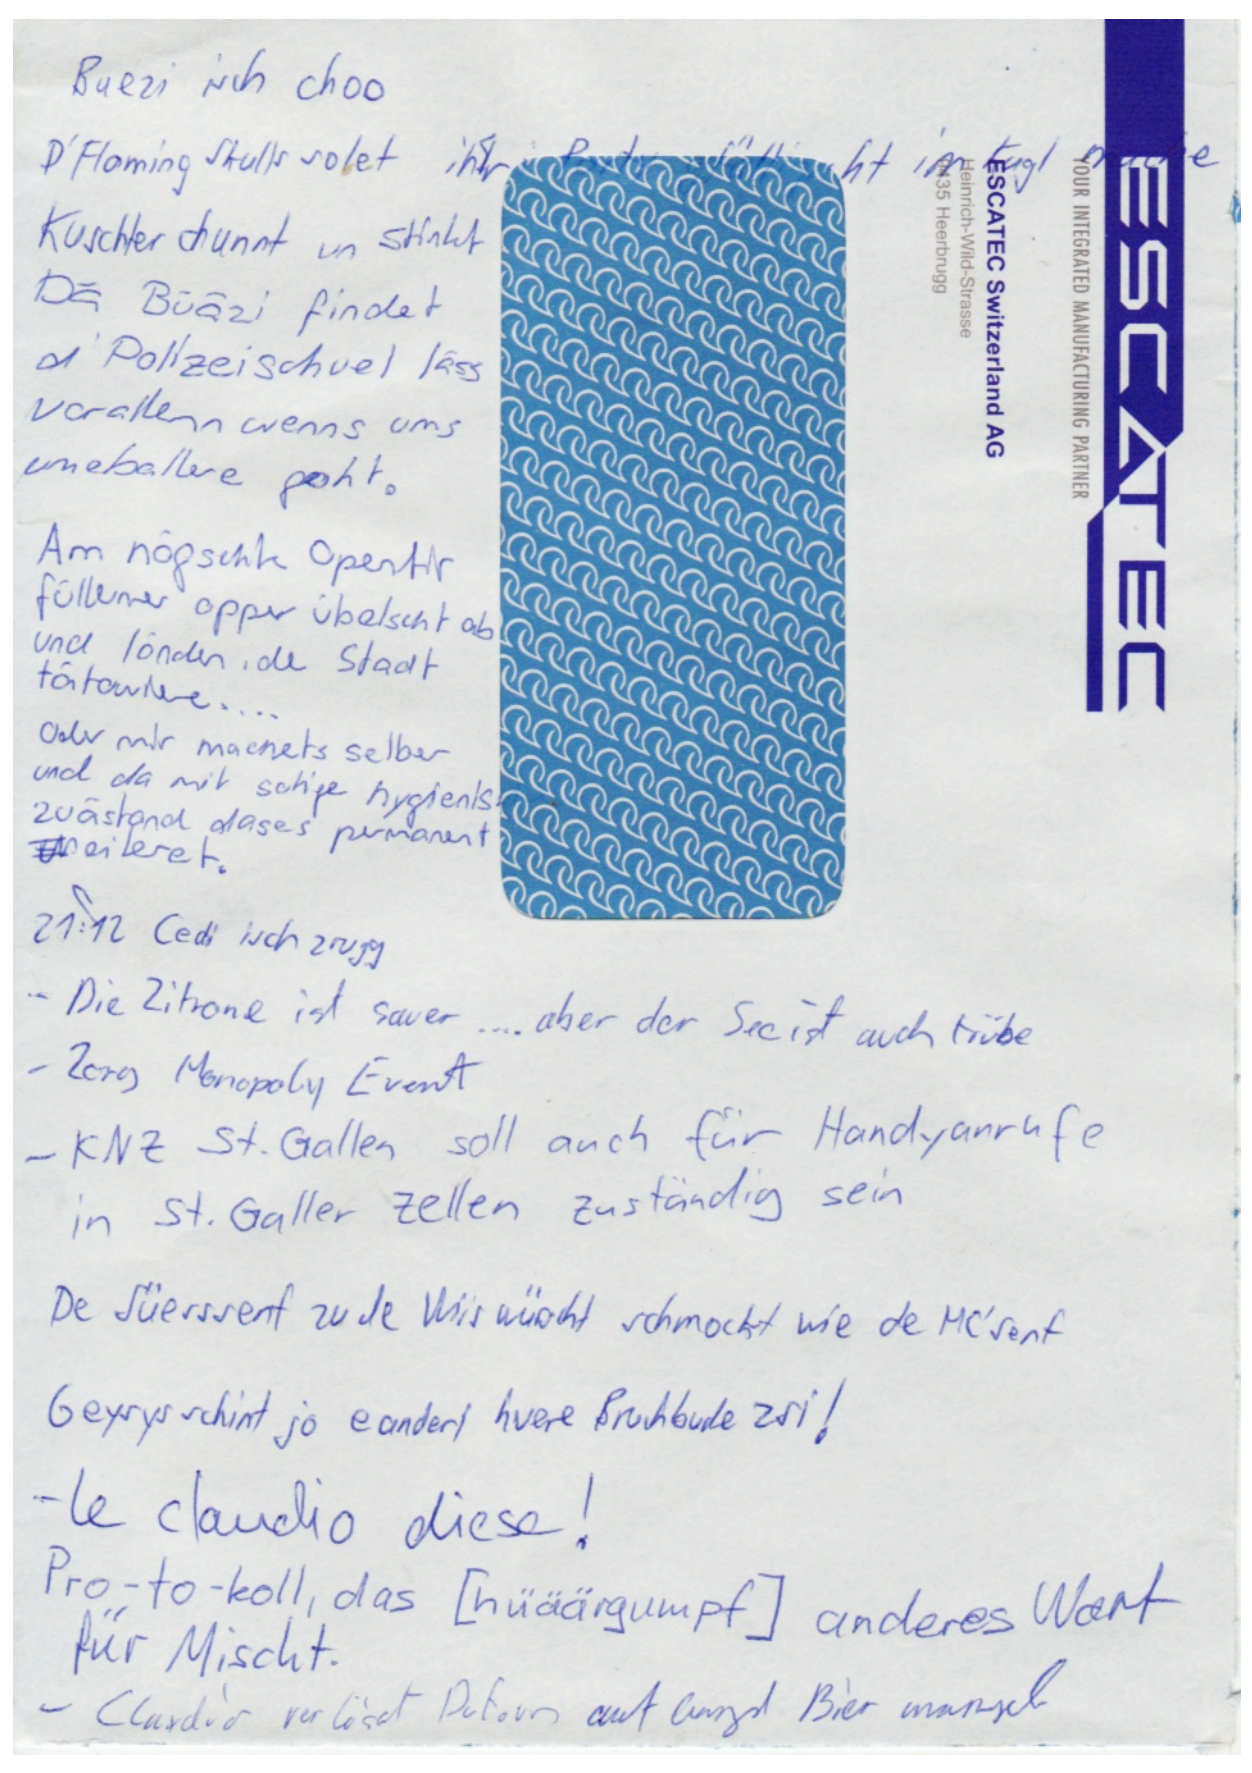 Buezi isch choo
D'Flaming Skulls wlet ihri im Kugl mache
Kuschter chunnt un stinkt
Dä Büäzi findet
d'Polizeischuel läss
vorallem wenns ums
umeballere goht.
Am nögschte OpenAir
füllemer opper übelscht ab
und lönden i de Stadt
tätowiere....
Oder mir machets selber
und da mit sottige hygienische
zuästand dases permanent
eiteret.
21:12 Cedi isch zrugg
- Die Zitrone ist sauer .... aber der See ist auch trübe
- Zorg Monopoly Event
- KNZ St. Gallen soll auch für Handyanrufe
in St. Galler Zellen zuständig sein
De Süesssenf zu de Wiswürscht schmöckt wie de MC'senf
Geyrys schint jo e anderi huere Bruchbude zsi!
- le claudio diese!
Pro-to-koll, das [hüäärgumpf] anderes Wort
für Mischt.
- Claudio verlösst auf Bier mangel
ESCATEC
YOUR INTEGRATED MANUFACTURING PARTNER
ESCATEC Switzerland AG
Heinrich-Wild-Strasse
9435 Heerbrugg